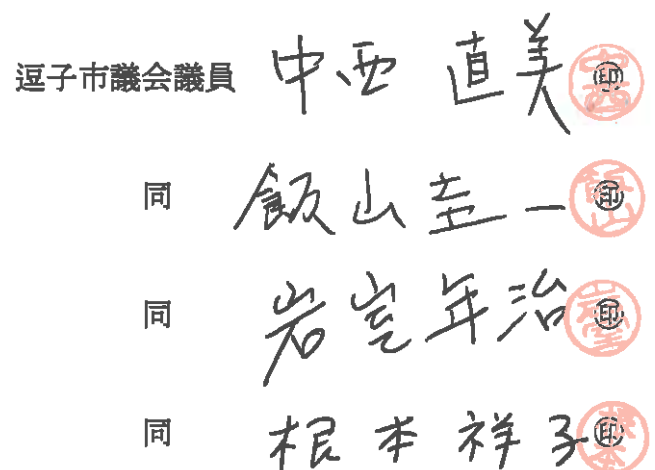 逗子市議会議員 中西 直美 ㊞
同 飯山 圭一 ㊞
同 岩室年治 ㊞
同 根本祥子 ㊞